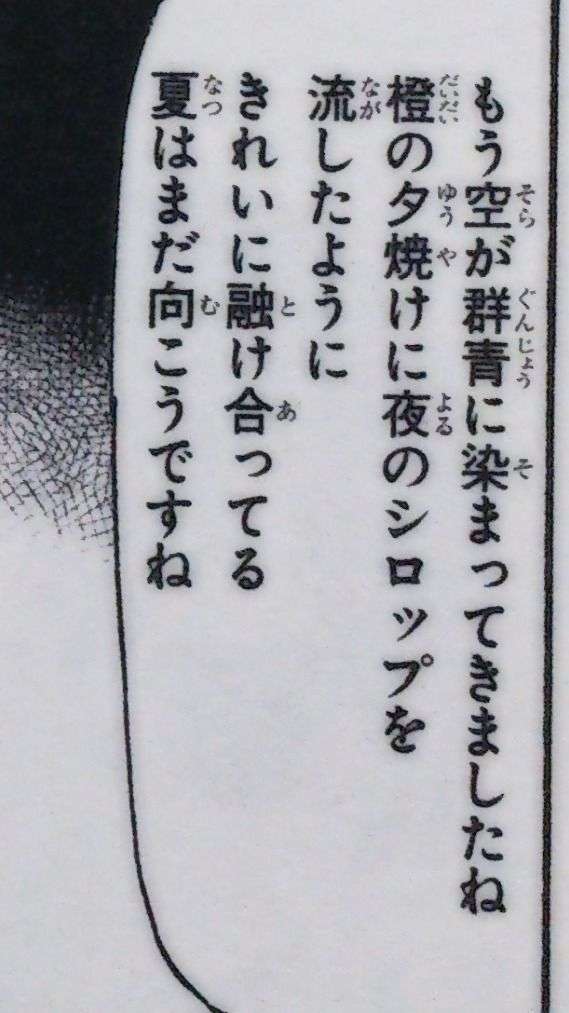 もう空が群青に染まってきましたね
橙の夕焼けに夜のシロップを
流したように
きれいに融け合ってる
夏はまだ向こうですね